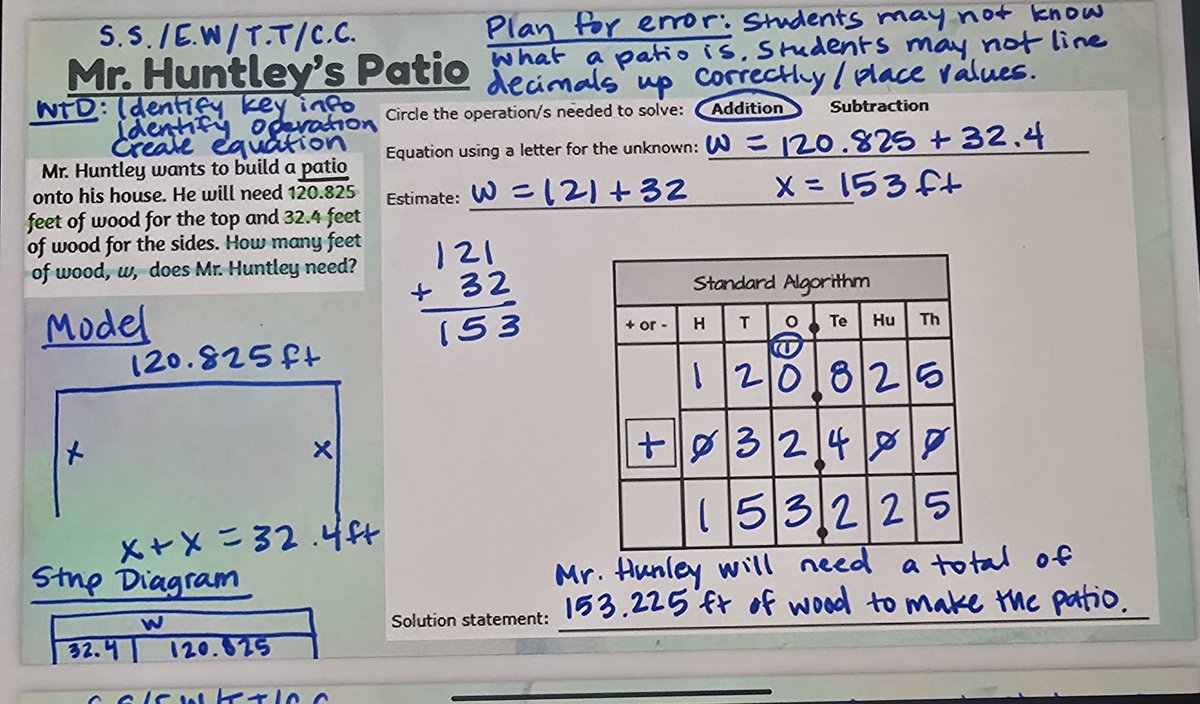 S.S./E.W/T.T/C.C.
Mr. Huntley's Patio
Plan for error: Students may not know
what a patio is. Students may not line
decimals up correctly/place values.
WTD: Identify key info
Identify operation
Create equation
Mr. Huntley wants to build a patio
onto his house. He will need 120.825
feet of wood for the top and 32.4 feet
of wood for the sides. How many feet
of wood, w, does Mr. Huntley need?
Circle the operation/s needed to solve: Addition Subtraction
Equation using a letter for the unknown: W = 120.825 + 32.4
Estimate: W = 121 + 32 x = 153 ft
121
+ 32
153
Model
120.825 ft
x x
x + x = 32.4ft
Strip Diagram
W
32.4 120.825
Standard Algorithm
+ or - H T O . Te Hu Th
1
1 2 0 . 8 2 5
+ 0 3 2 . 4 0 0
1 5 3 . 2 2 5
Mr. Hunley will need a total of
Solution statement: 153.225 ft of wood to make the patio.